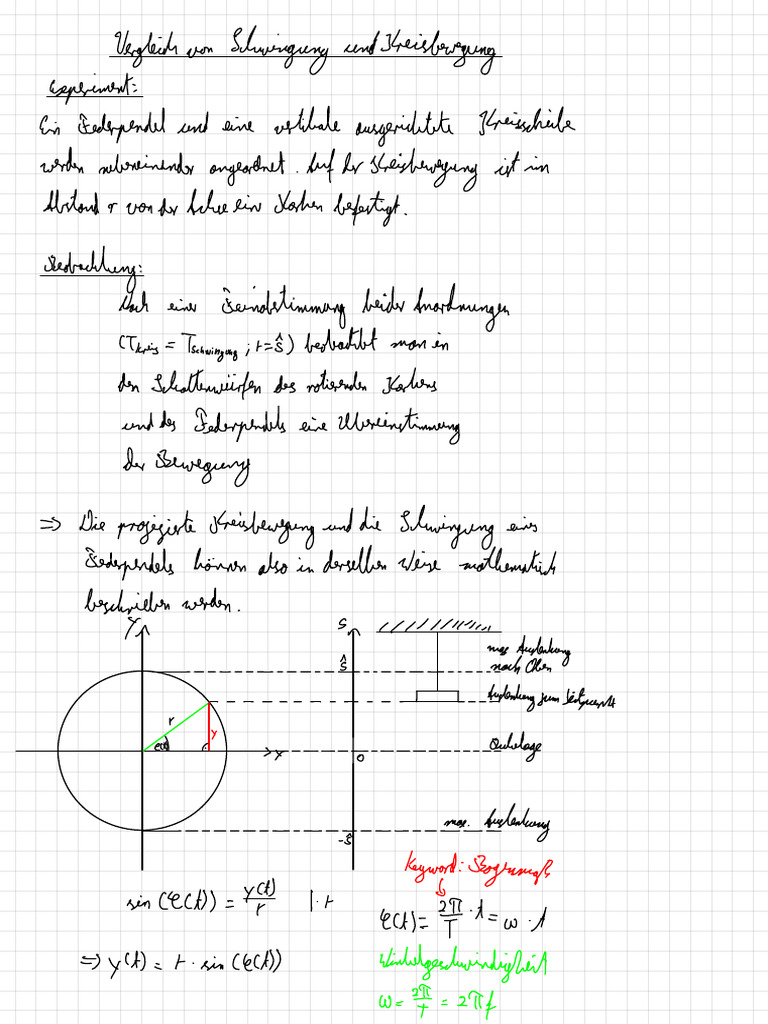 Vergleich von Schwingung und Kreisbewegung
Experiment:
Ein Federpendel und eine vertikale ausgerichtete Kreisscheibe
werden nebeneinander angeordnet. Auf der Kreisbewegung ist im
Abstand r von der Achse ein Korken befestigt.
Beobachtung:
Nach einer Feinabstimmung beider Anordnungen
(T_Kreis = T_Schwingung ; r = ŝ) beobachtet man in
den Schattenwürfen des rotierenden Korkens
und des Federpendels eine Übereinstimmung
der Bewegung
=> Die projezierte Kreisbewegung und die Schwingung eines
Federpendels können also in derselben Weise mathematisch
beschrieben werden.
y s
ŝ max Auslenkung
nach Oben
Auslenkung zum Zeitpunkt
r y
φ(t) x 0 Ruhelage
max. Auslenkung
-ŝ
Keyword: Bogenmaß
sin(φ(t)) = y(t)/r | · r
φ(t) = 2π/T · t = ω · t
=> y(t) = r · sin(φ(t))
Winkelgeschwindigkeit
ω = 2π/T = 2πf